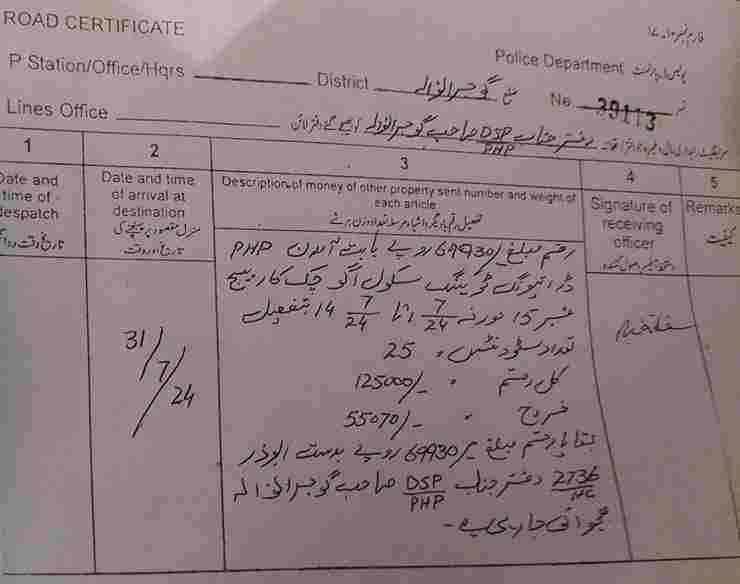 ROAD CERTIFICATE
فارم نمبر 10.17
P Station/Office/Hqrs
District ضلع گوجرانوالہ
Police Department پولیس ڈیپارٹمنٹ
No 39113 نمبر
Lines Office
دفتر جناب DSP/PHP صاحب گوجرانوالہ
1
2
3
4
5
Date and time of despatch
Date and time of arrival at destination
منزل مقصود پر پہنچنے کی تاریخ اور وقت
Description of money of other property sent number and weight of each article
Signature of receiving officer
Remarks
کیفیت
31/7/24
رقم مبلغ /69930 روپے بابت آمدن PHP
ڈرائیونگ ٹریننگ سکول اگو چک کا بیچ
نمبر 15 مورخہ 7/24 1 تا 7/24 14 بتفصیل
تعداد سٹوڈنٹس = 25
کل رقم = 125000/-
خرچ = 55070/-
بقایا رقم مبلغ /69930 روپے بدست ابوذر
2736/HC دفتر جناب DSP/PHP صاحب گوجرانوالہ
بھجوائی جا رہی ہے-